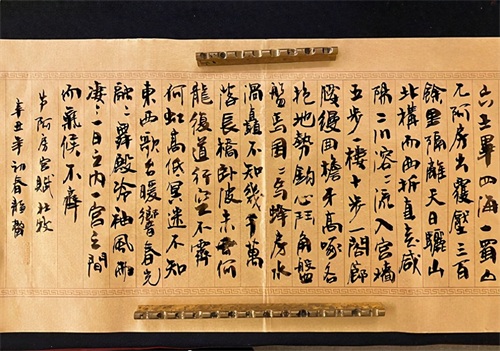 六王畢四海一蜀山
兀阿房出覆壓三百
餘里隔離天日驪山
北構而西折直走咸
陽二川溶々流入宮牆
五步一樓十步一閣廊
腰縵回檐牙高啄各
抱地勢鈎心鬥角盤
盤焉囷々焉蜂房水
渦矗不知幾千萬
落長橋卧波未雲何
龍復道行空不霽
何虹高低冥迷不知
東西歌台暖響春光
融々舞殿冷袖風雨
凄々一日之内一宮之間
而氣候不齊
节阿房宮賦杜牧
辛丑年初春